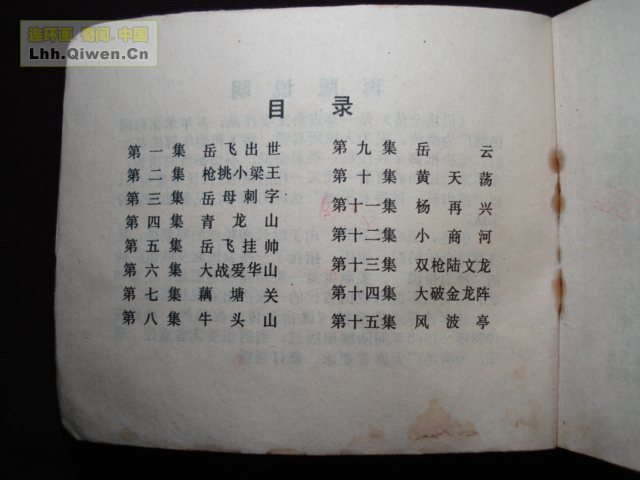 连环画·奇闻.中国
Lhh.Qiwen.Cn
再版说明
目 录
第一集 岳飞出世
第二集 枪挑小梁王
第三集 岳母刺字
第四集 青龙山
第五集 岳飞挂帅
第六集 大战爱华山
第七集 藕塘关
第八集 牛头山
第九集 岳云
第十集 黄天荡
第十一集 杨再兴
第十二集 小商河
第十三集 双枪陆文龙
第十四集 大破金龙阵
第十五集 风波亭